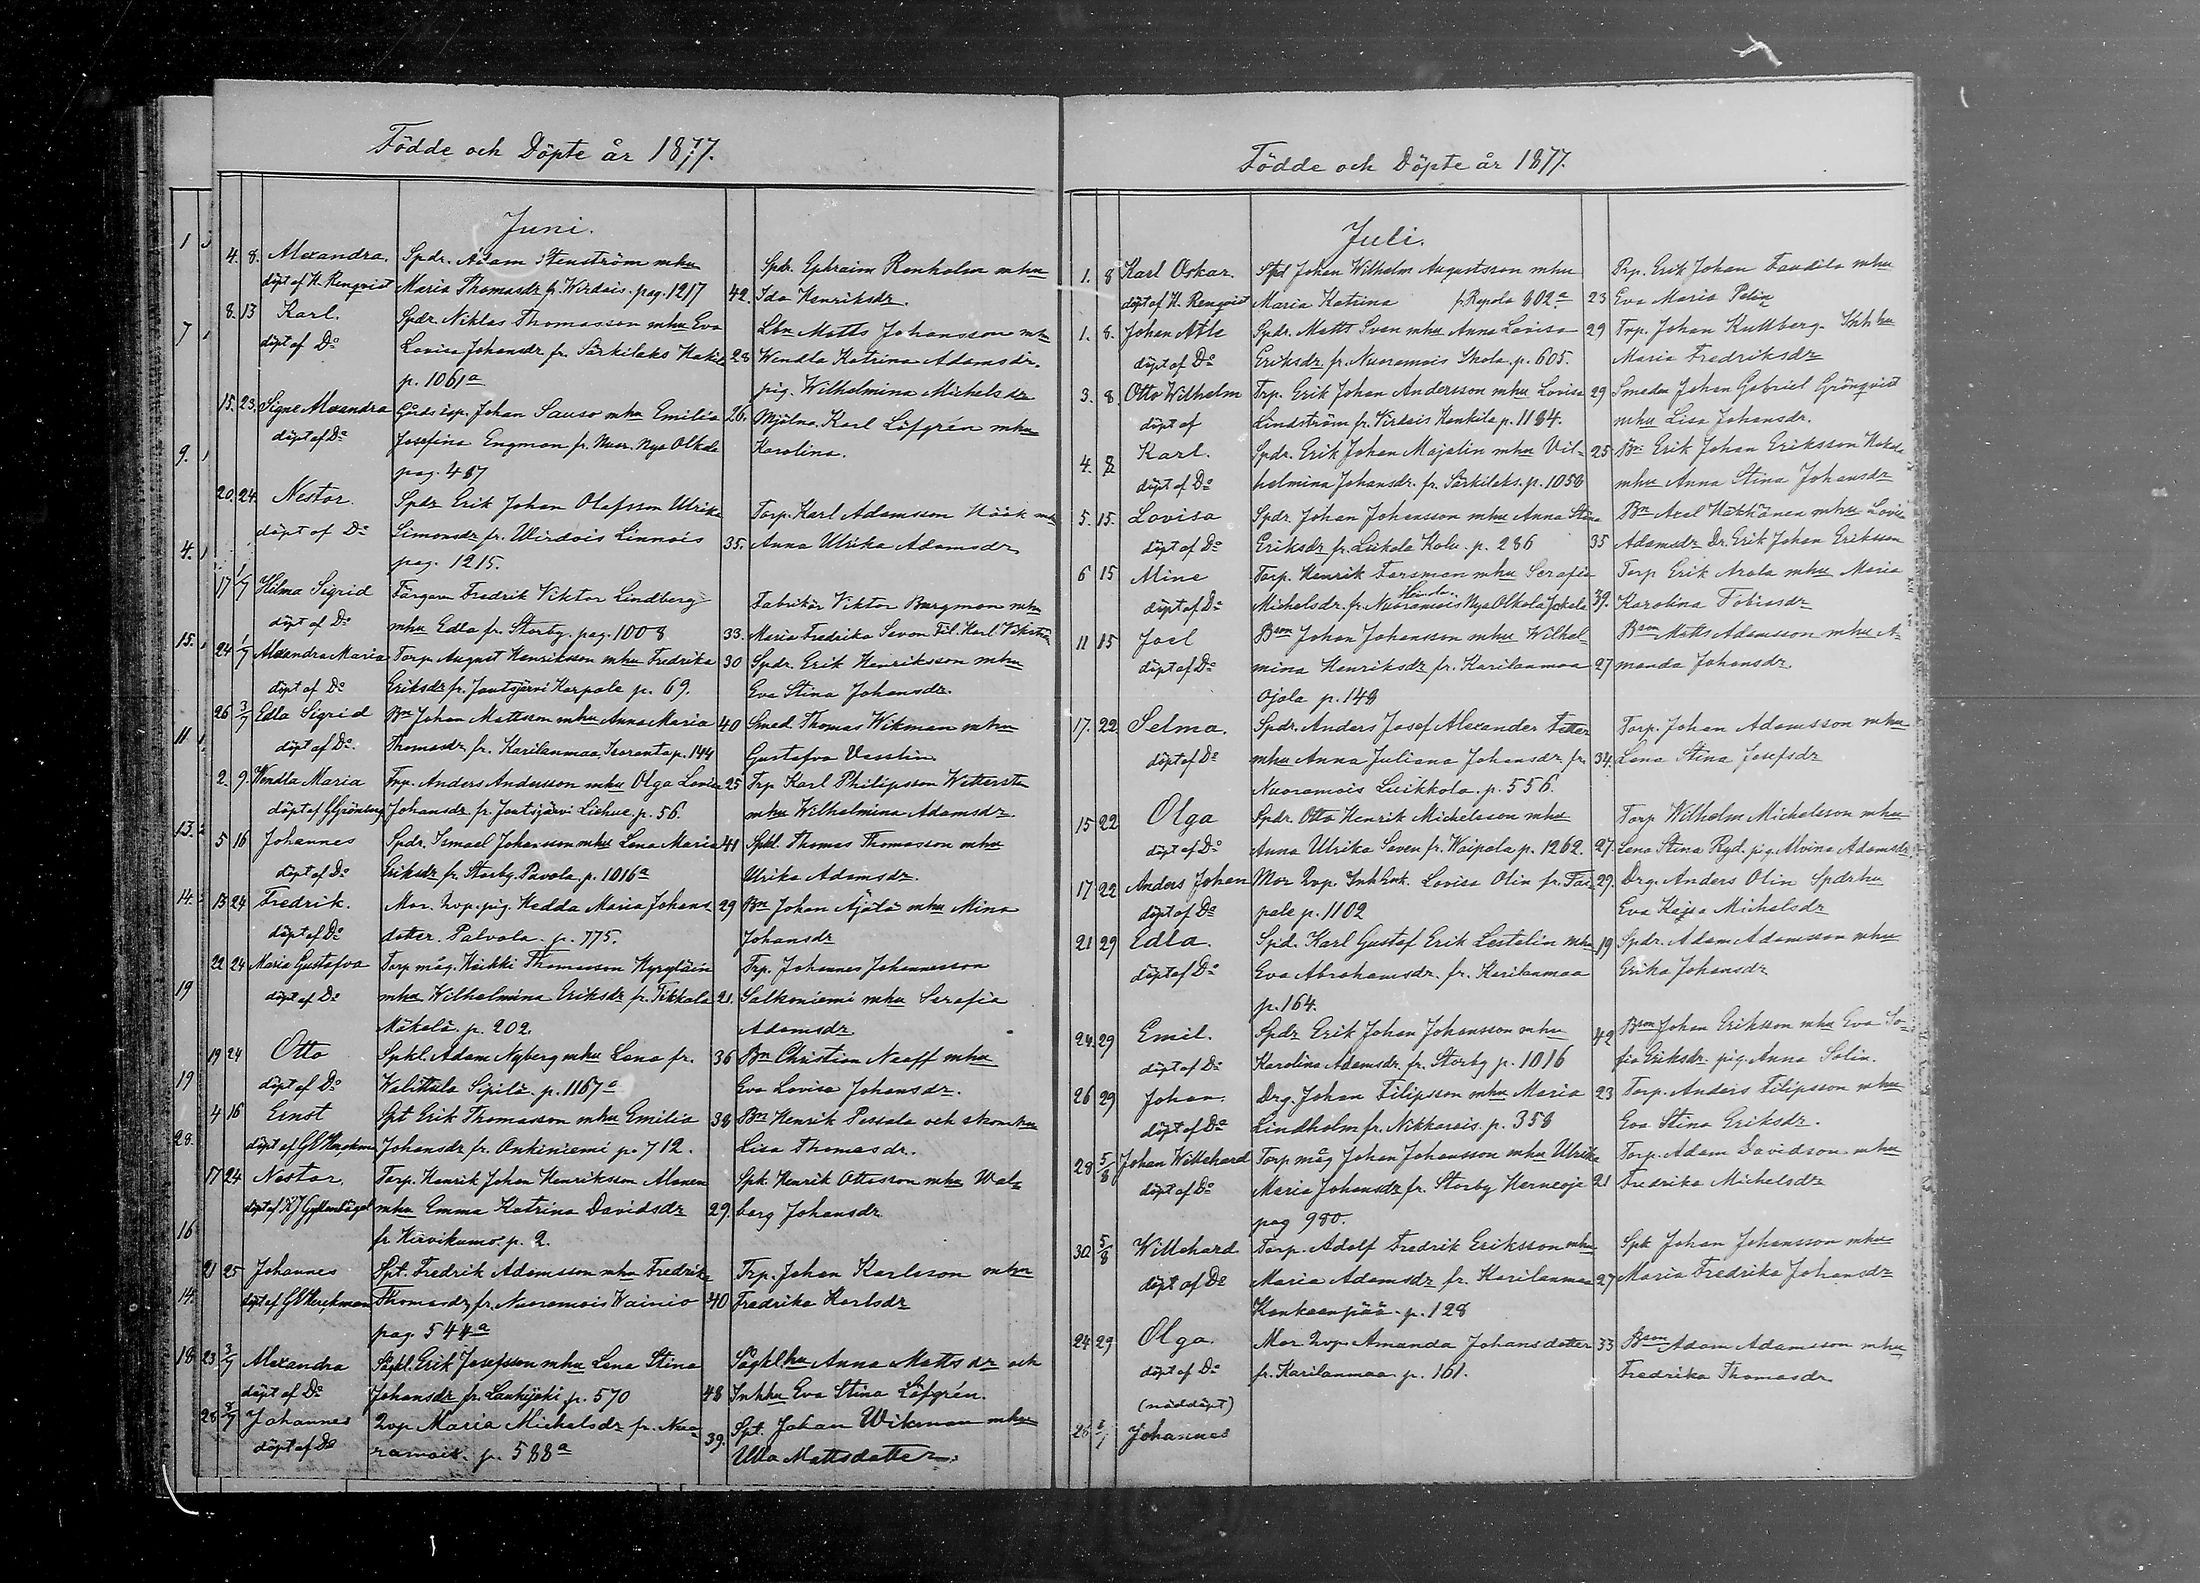 Födde och Döpte år 1877.
Juni.
4. 8. Alexandra. Spdr. Adam Stenström mhu Spdr. Ephraim Renholm mhu
döpt af H. Renqvist Maria Thomasdr fr Wirdois. pag. 1217 42. Ida Henriksdr.
8. 13 Karl. Spdr. Niklas Thomasson mhu Eva Lbn Matts Johansson mhu
döpt af Do Lovisa Johansdr fr. Särkilaks Kakila 28 Wendla Katrina Adamsdr.
p. 1061a pig. Wilhelmina Michelsdr
15. 23. Signe Alexandra Gårds insp. Johan Sauso mhu Emilia 26. Mjölna. Karl Löfgrén mhu
döpt af Do Josefina Engman fr. Nuor. Nya Olkola Karolina.
pag. 487
20. 24. Nestor. Spdr Erik Johan Olofsson Ulrika Torp. Karl Adamsson Höök mhu
döpt af Do Simonsdr fr. Wirdois Linnois 35. Anna Ulrika Adamsdr
pag. 1215.
17 1/7 Hilma Sigrid Färgaren Fredrik Viktor Lindberg Fabrikör Viktor Bergman mhu
döpt af Do mhu Edla fr. Storby. pag. 1008 33. Maria Fredrika Sevon Fil. Karl
24 1/7 Alexandra Maria Torp. August Henriksson mhu Fredrika 30 Spdr. Erik Henriksson mhu
döpt af Do Eriksdr fr. Joutsjärvi Karpale p. 69. Eva Stina Johansdr.
26 3/7 Edla Sigrid Bn Johan Mattsson mhu Anna Maria 40 Smed. Thomas Wikman mhu
döpt af Do. Thomasdr fr. Karilanmaa Isoranta p. 144 Gustafva Vesslin
2. 9. Wendla Maria Trp. Anders Andersson mhu Olga Lovisa 25 Trp Karl Philipsson
döpt af G Grönberg Johansdr fr. Joutsjärvi Liehue. p. 56. mhu Wilhelmina Adamsdr
5 16 Johannes Spdr. Ismael Johansson mhu Lena Maria 41 Spkl. Thomas Thomasson mhu
döpt af Do Eriksdr fr. Storby Pavola p. 1016a Ulrika Adamsdr.
13 24 Fredrik. Mor. Qvp. pig. Hedda Maria Johans 29 Bn Johan Äjälä mhu Mina
döpt af Do dotter. Palvola. p. 775. Johansdr
22 24 Maria Gustafva Torp måg. Heikki Thomasson Kyryläin Trp. Johannes Johannesson
döpt af Do mhu Wilhelmina Eriksdr fr. Tikkala 21. Salkoniemi mhu Serafia
Mäkelä. p. 202. Adamsdr
19 24 Otto Spkl. Adam Nyberg mhu Lena fr. 36 Bn Christian Naaff mhu
döpt af Do Walittula Sipilä. p. 1167a Eva Lovisa Johansdr.
4 16 Ernst Spt Erik Thomasson mhu Emilia 38 Bn Henrik Pessala och
döpt af Johansdr fr. Onkiniemi p. 712. Lisa Thomasdr.
17 24 Nestor. Torp. Henrik Johan Henriksson Alanen Spk. Henrik Ottosson mhu Wal-
döpt af KJ Gyllenbögel mhu Emma Katrina Davidsdr 29. borg Johansdr
fr Hirvikumo. p. 2.
21 25 Johannes Spt. Fredrik Adamsson mhu Fredrika Trp. Johan Karlsson mhu
döpt af Thomasdr fr. Nuoramois Wainio 40 Fredrika Karlsdr
pag. 544a
23 3/7 Alexandra Sågkl. Erik Josefsson mhu Lena Stina Sågklhu Anna Mattsdr och
döpt af Do Johansdr fr. p. 570 48 Inhhu Eva Stina Löfgrén.
28 8/7 Johannes Qvp Maria Michelsdr fr. Nuo- 39. Spt. Johan Wikman mhu
döpt af Do ramois. p. 588a Ulla Mattsdotter.
Födde och Döpte år 1877.
Juli.
1. 8 Karl Oskar. Spd Johan Wilhelm Augustsson mhu Trp. Erik Johan Taudila mhu
döpt af H. Renqvist Maria Katrina fr Repola 802a 23 Eva Maria Pelin
1. 8. Johan Atle Spdr. Matts Sven mhu Anna Lovisa 29 Trp. Johan Kullberg
döpt af Do Eriksdr fr. Nuoramois Skola. p. 605. Maria Fredriksdr
3. 8. Otto Wilhelm Trp. Erik Johan Andersson mhu Lovisa 29 Smeden Johan Gabriel Grönqvist
döpt af Lindström fr. Virdois Kenkila p. 1184. mhu Lisa Johansdr.
4. 8 Karl. Spdr. Erik Johan Majalin mhu Vil- 25 Bn Erik Johan Eriksson
döpt af Do helmina Johansdr. fr. Särkilaks. p. 1050 mhu Anna Stina Johansdr
5. 15. Lovisa Spdr. Johan Johansson mhu Anna Stina Bn Axel Häkkänen mhu Lovisa
döpt af Do Eriksdr fr. Leikola Kolu. p. 286 35 Adamsdr Dr. Erik Johan Eriksson
6 15 Mine Torp. Henrik Forsman mhu Serafia Torp Erik Arola mhu Maria
döpt af Do Michelsdr. fr. Nuoramois Nya Olkola Jokela 39. Karolina Tobiasdr
11 15 Joel Bson Johan Johansson mhu Wilhel- Bson Matts Adamsson mhu A-
döpt af Do mina Henriksdr fr. Karilanmaa 27 manda Johansdr
Ojala p. 148
17. 22 Selma. Spdr. Anders Josef Alexander Torp. Johan Adamsson mhu
döpt af Do mhu Anna Juliana Johansdr fr 34. Lena Stina Josefsdr
Nuoramois Leikkola. p. 556.
15 22 Olga Spdr. Otto Henrik Michelsson mhu Torp Wilhelm Michelsson mhu
döpt af Do Anna Ulrika Seven fr. Woipala p. 1262. 27. Lena Stina Ryd. pig. Alvina Adamsdr.
17 22 Anders Johan Mor Qvp. Inh Enk. Lovisa Olin fr. Tai- 29. Drg. Anders Olin Spdrhu
döpt af Do pale p. 1102 Eva Kajsa Michelsdr
21 29 Edla. Spd. Karl Gustaf Erik Lestelin mhu 19 Spdr. Adam Adamsson mhu
döpt af Do Eva Abrahamsdr. fr. Karilanmaa Erika Johansdr
p. 164.
24. 29 Emil. Spdr Erik Johan Johansson mhu 42 Bson Johan Eriksson mhu Eva So-
döpt af Do Karolina Adamsdr. fr. Storby p. 1016 fia Eriksdr. pig. Anna Solin.
26 29 Johan. Drg. Johan Filipsson mhu Maria 23 Torp. Anders Filipsson mhu
döpt af Do Lindholm fr. Nikkarois. p. 358 Eva Stina Eriksdr.
28 5/8 Johan Willehard Torp måg Johan Johansson mhu Ulrika Torp. Adam Davidson mhu
döpt af Do Maria Johansdr fr. Storby Herneoja 21 Fredrika Michelsdr
pag 980.
30. 5/8 Willehard Torp. Adolf Fredrik Eriksson mhu Spk Johan Johansson mhu
döpt af Do Maria Adamsdr fr. Karilanmaa 27 Maria Fredrika Johansdr
Kankaanpää. p. 128
24 29 Olga. Mor Qvp. Amanda Johansdotter 33 Bson Adam Adamsson mhu
döpt af Do fr. Karilanmaa p. 161. Fredrika Thomasdr
(nöddöpt)
Johannes